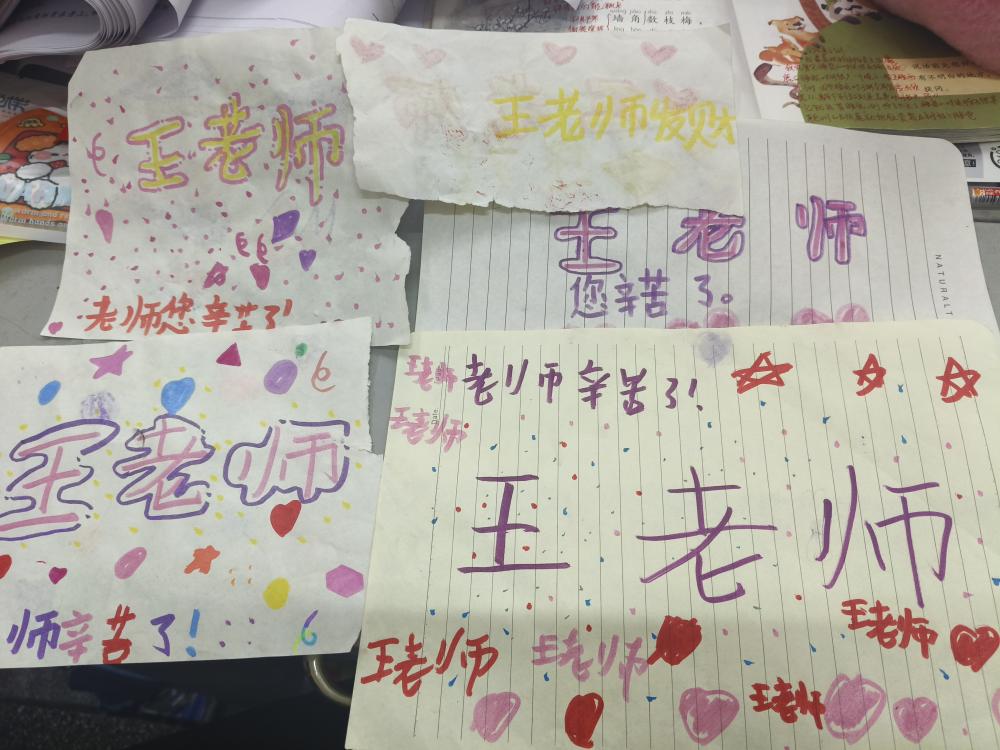 墙角数枝梅，
王老师
老师您辛苦了!
王老师发财
王老师
您辛苦了。
NATURALT
王老师
师辛苦了!
王老师
老师辛苦了!
王老师
王老师
王老师
王老师
王老师
王老师